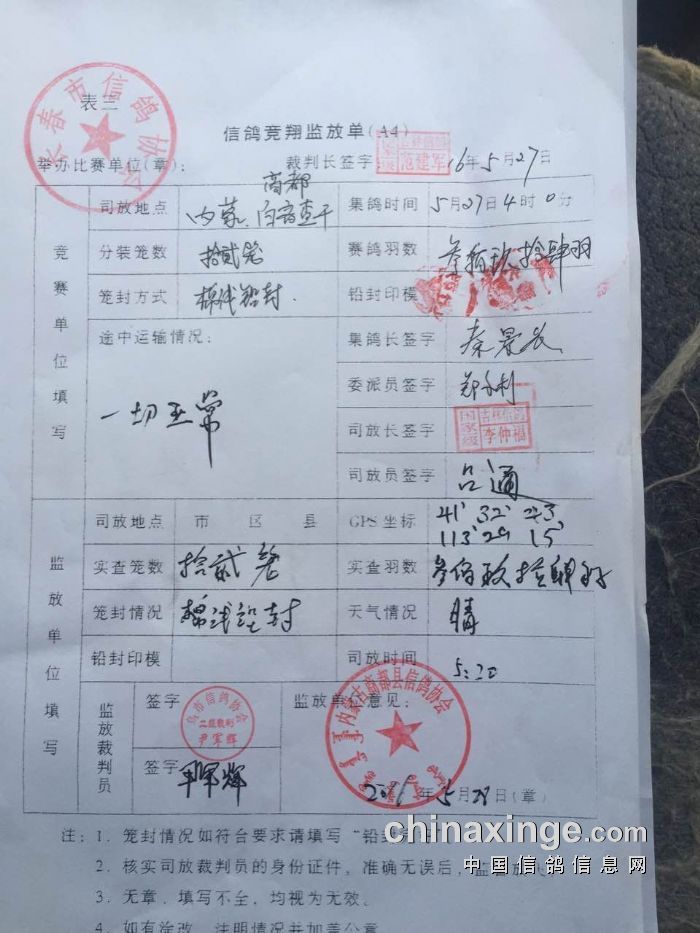 长春市信鸽协会
表三
信鸽竞翔监放单(A4)
举办比赛单位(章): 裁判长签字 范建军 16年5月27日
竞赛单位填写
司放地点 内蒙 商都 集鸽时间 5月27日4时0分
分装笼数 拾贰笼 赛鸽羽数 叁佰玖拾肆羽
笼封方式 棉线铅封 铅封印模
途中运输情况: 集鸽长签字
一切正常
委派员签字
司放长签字 国家级 李仲福
司放员签字 吕通
监放单位填写
司放地点 市 区 县 GPS坐标 41° 32' 43
113° 29 15
实查笼数 拾贰笼 实查羽数 叁佰玖拾肆羽
笼封情况 棉线铅封 天气情况 晴
铅封印模 司放时间 5:20
监放裁判员
签字 市信鸽协会 二级裁判 尹军辉
签字 尹军辉
监放单位意见:
内蒙古商都县信鸽协会
2016年5月28日(章)
注:1.笼封情况如符合要求请填写"铅封
2.核实司放裁判员的身份证件,准确无误后,监
3.无章、填写不全,均视为无效。
4.如有涂改,注明情况并加盖公章
chinaxinge.com
中国信鸽信息网